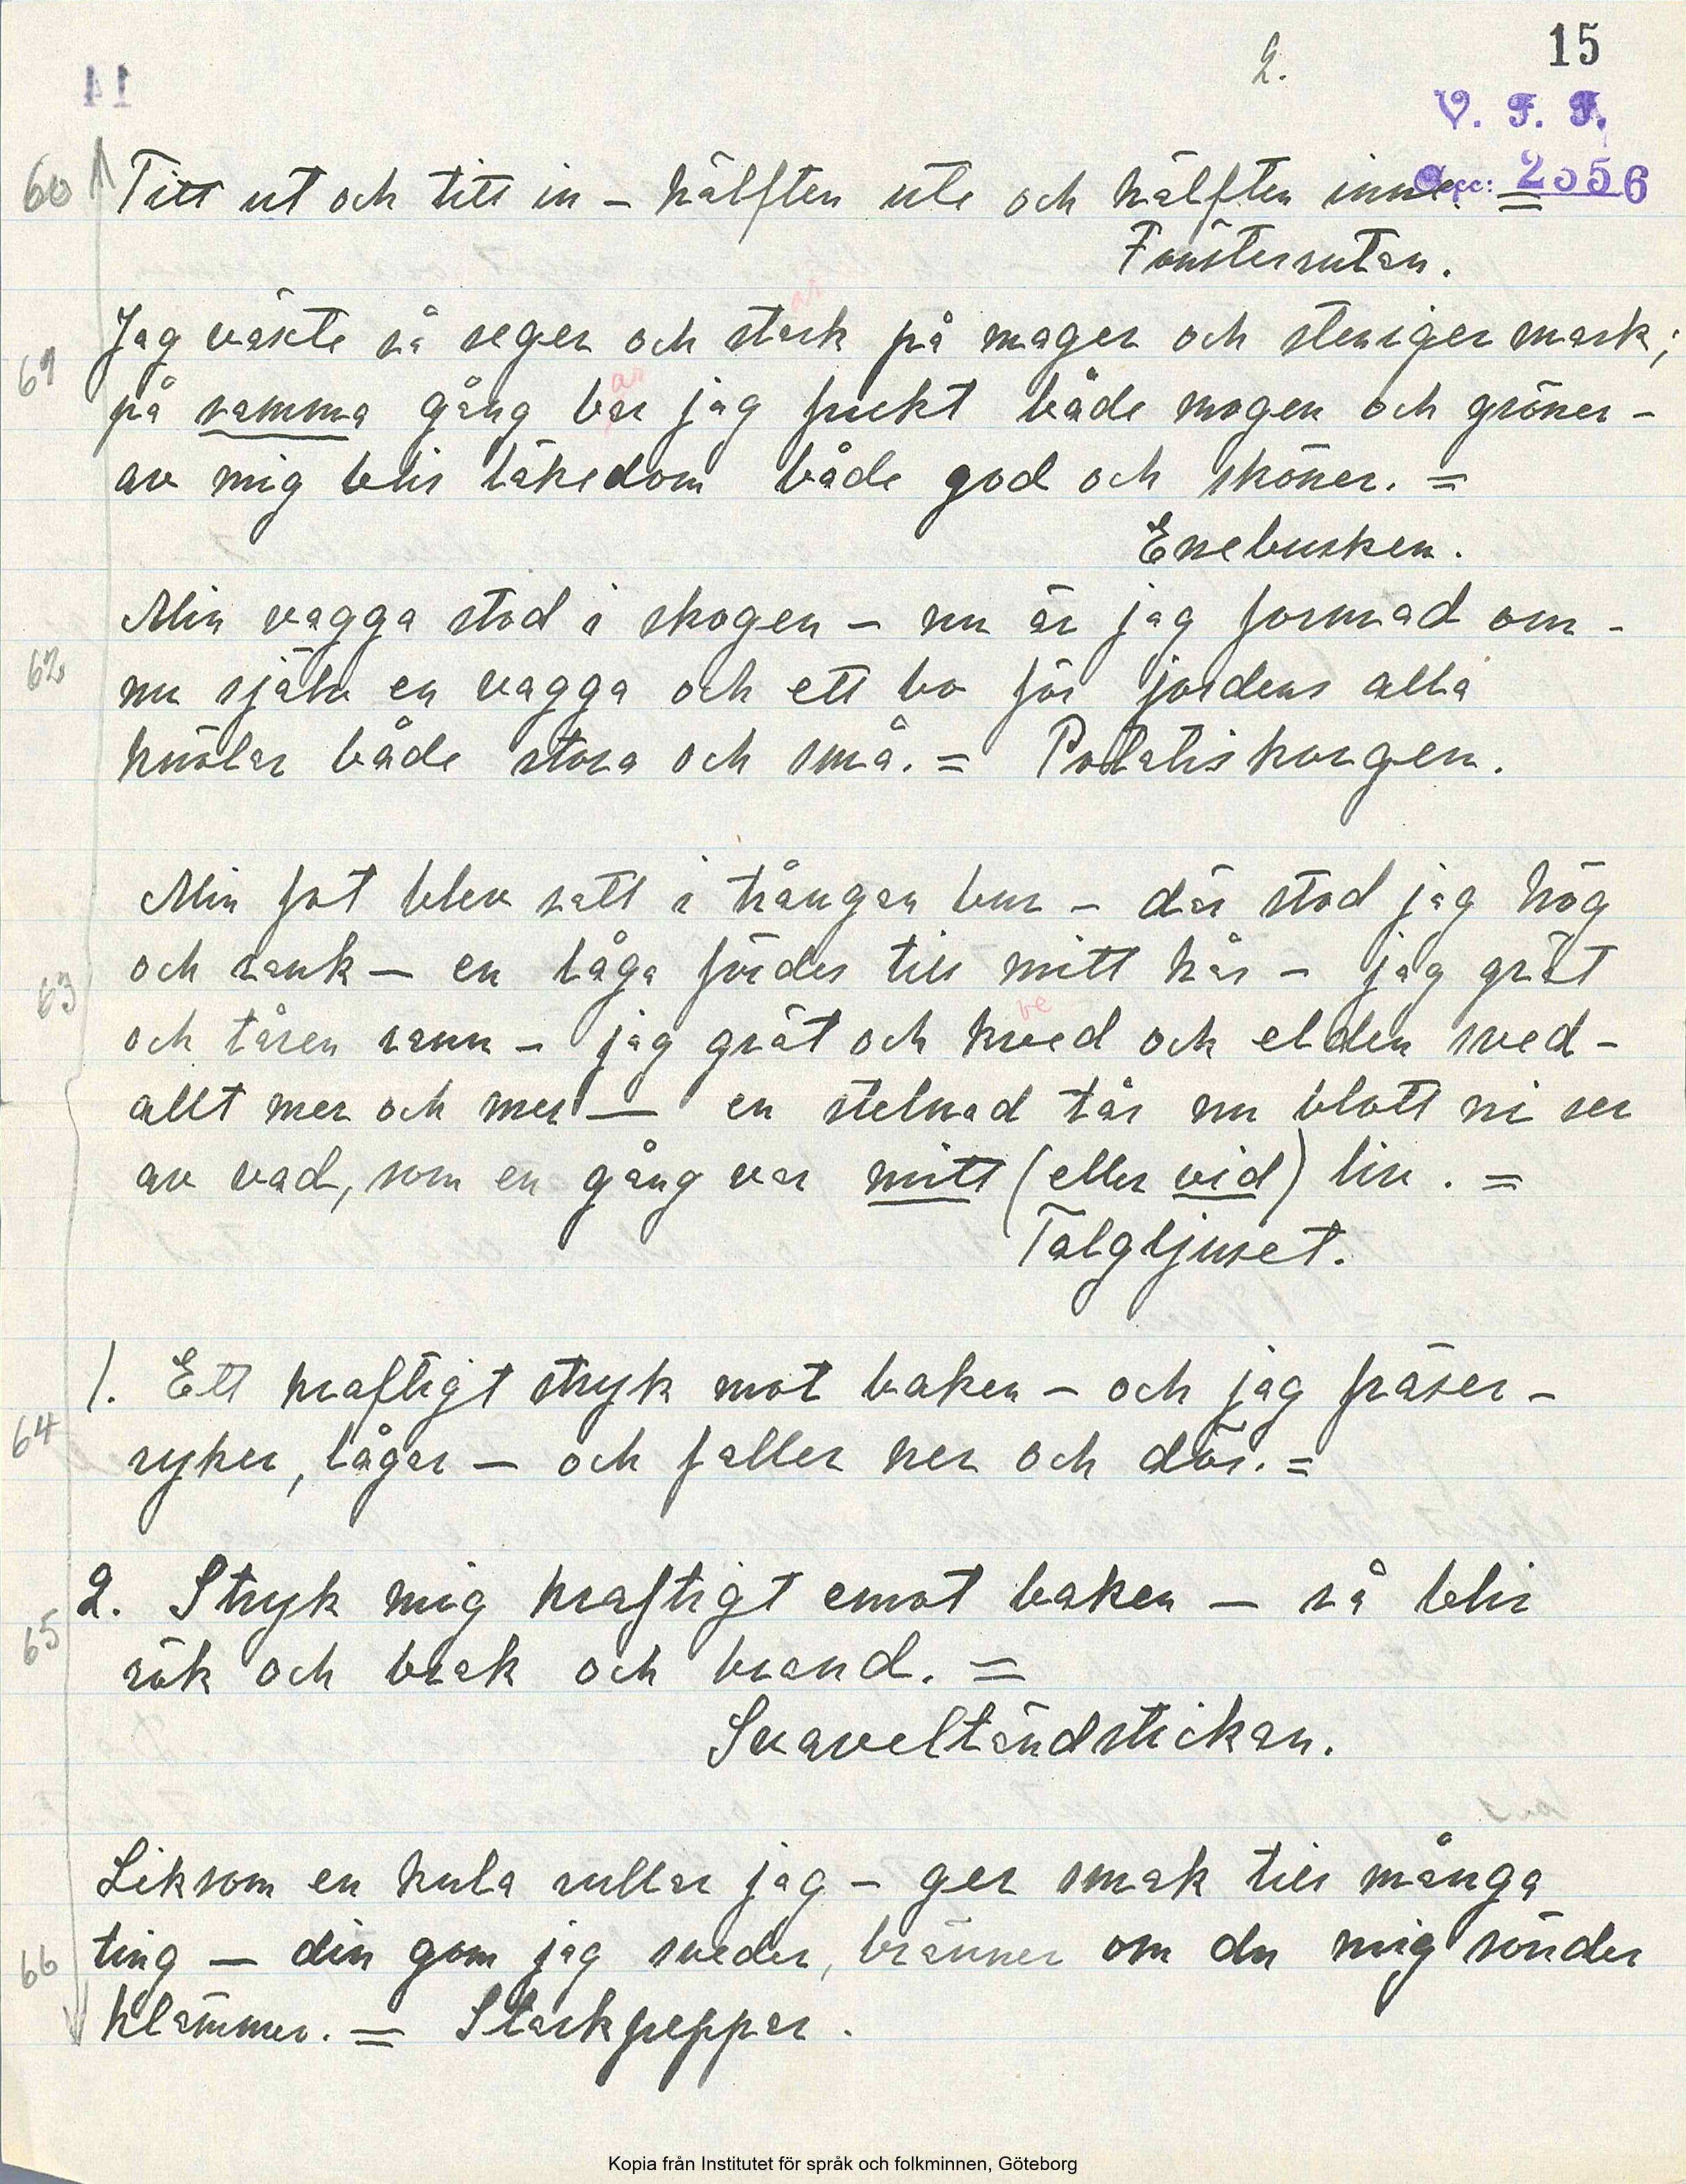 15
2.
14
V. F. F.
Acc: 2556
60 Titt ut och titt in – hälften ute och hälften inne. =
Fönsterrutan.
ar
61 Jag växte så seger och stark på mager och steniger mark;
ar
på samma gång bar jag frukt både mogen och gröner –
av mig blir läkedom både god och sköner. =
Enebusken.
62 Min vagga stod i skogen – nu är jag formad om –
nu själv en vagga och ett bo för jordens alla
knölar både stora och små. = Potatiskorgen.
Min fot blev satt i trångan bur – där stod jag hög
63 och rank – en låga fördes till mitt hår – jag grät
ve
och tåren rann – jag grät och kved och elden sved –
allt mer och mer – en stelnad tår nu blott ni ser
av vad, som en gång var mitt (eller vid) liv. =
Talgljuset.
1. Ett kraftigt stryk mot baken – och jag fräser –
64 ryker, lågar – och faller ner och dör. =
2. Stryk mig kraftigt emot baken – så blir
65 rök och brak och brand. =
Svaveltändstickan.
Liksom en kula rullar jag – ger smak till många
66 ting – din gom jag sveder, bränner om du mig sönder
klämmer. = Starkpeppar.
Kopia från Institutet för språk och folkminnen, Göteborg